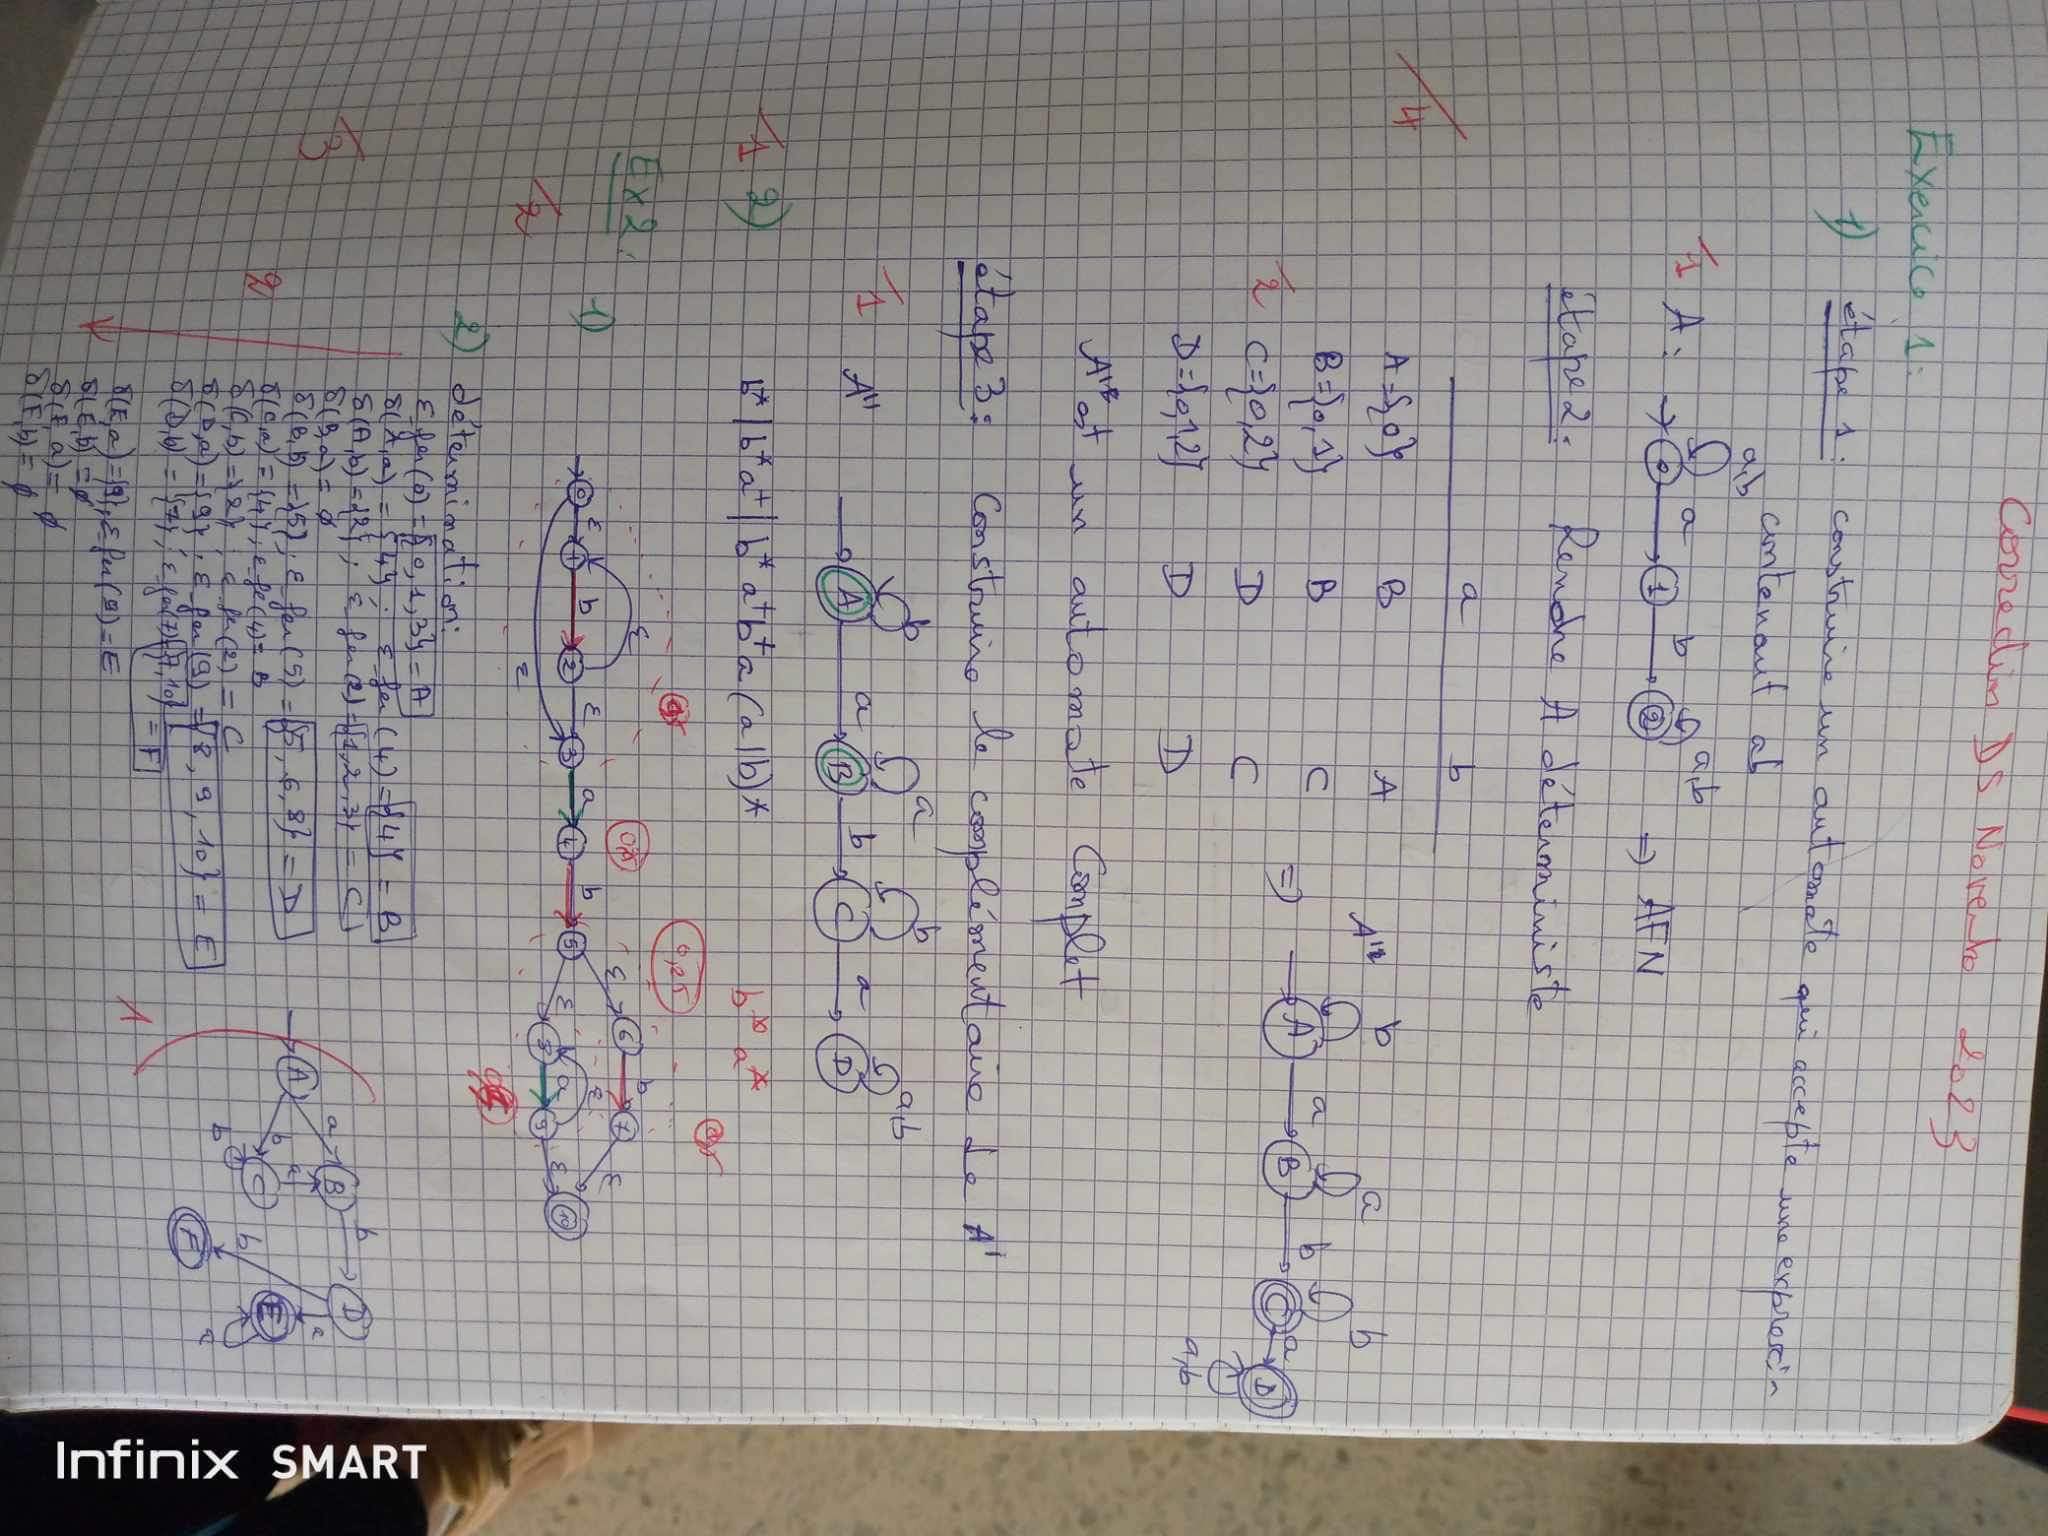 Correction DS Novembre 2023
Exercice 1:
1) étape 1: construire un automate qui accepte une expression
contenant ab
/1 A: a,b 0 a 1 b 2 a,b => AFN
étape 2: Rendre A déterministe
/4
a b
A={0} B A
B={0,1} B C
/2 C={0,2} D C
D={0,1,2} D D
=> A' b A a a B b b C a D a,b
A' est un automate Complet
étape 3: Construire le complémentaire de A'
/1 A" b A a a B b b C a a,b D
/1 2) b* | b*a+ | b* a+b+a (a|b)* b* a*
Ex 2:
1) 0 ε 1 b 2 ε 3 a 4 b 5 ε 6 b 7 ε 10
ε ε ε 8 a 9 ε ε
0,25
/2
2) détermination:
ε fer(0) = {0,1,3} = A
δ(A,a) = {4} ; ε fer(4) = {4} = B
δ(A,b) = {2} ; ε fer(2) = {1,2,3} = C
δ(B,a) = ∅
δ(B,b) = {5} ; ε fer(5) = {5,6,8} = D
δ(C,a) = {4} ; ε fe(4) = B
δ(C,b) = {2} ; ε fer(2) = C
δ(D,a) = {9} ; ε fer(9) = {8,9,10} = E
δ(D,b) = {7} ; ε fer(7) = {7,10}
= F
δ(E,a) = {9}, ε fer(9) = E
δ(E,b) = ∅
δ(F,a) = ∅
δ(F,b) = ∅
/3
2
A a B b D a E a
b C a b b F
1
Infinix SMART